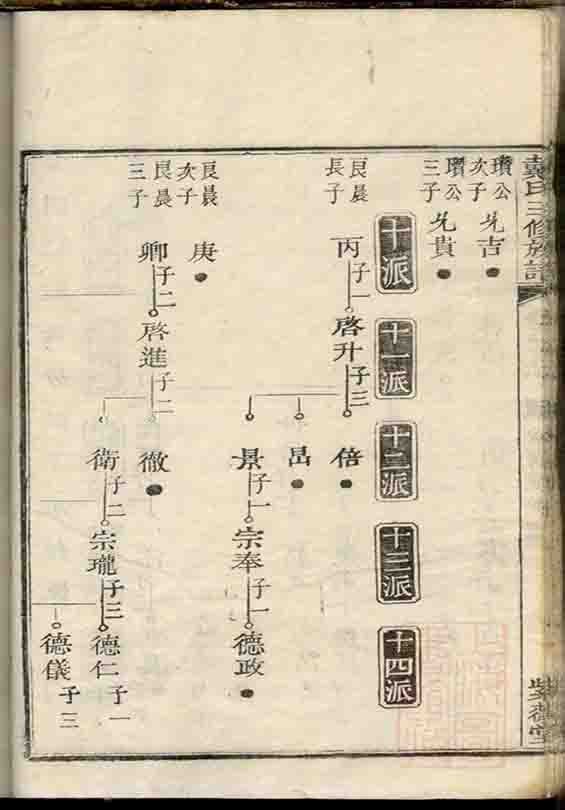 戴氏三修族譜
瓚公
次子
兆吉
瓚公
三子
兆貴
十派
十一派
十二派
十三派
十四派
良晨
長子
丙
子一
啓升
子三
倍
昌
景
子一
宗奉
子一
德政
良晨
次子
庚
良晨
三子
卿
子二
啓進
子二
徹
衛
子二
宗瓏
子三
德仁
子一
德儀
子三